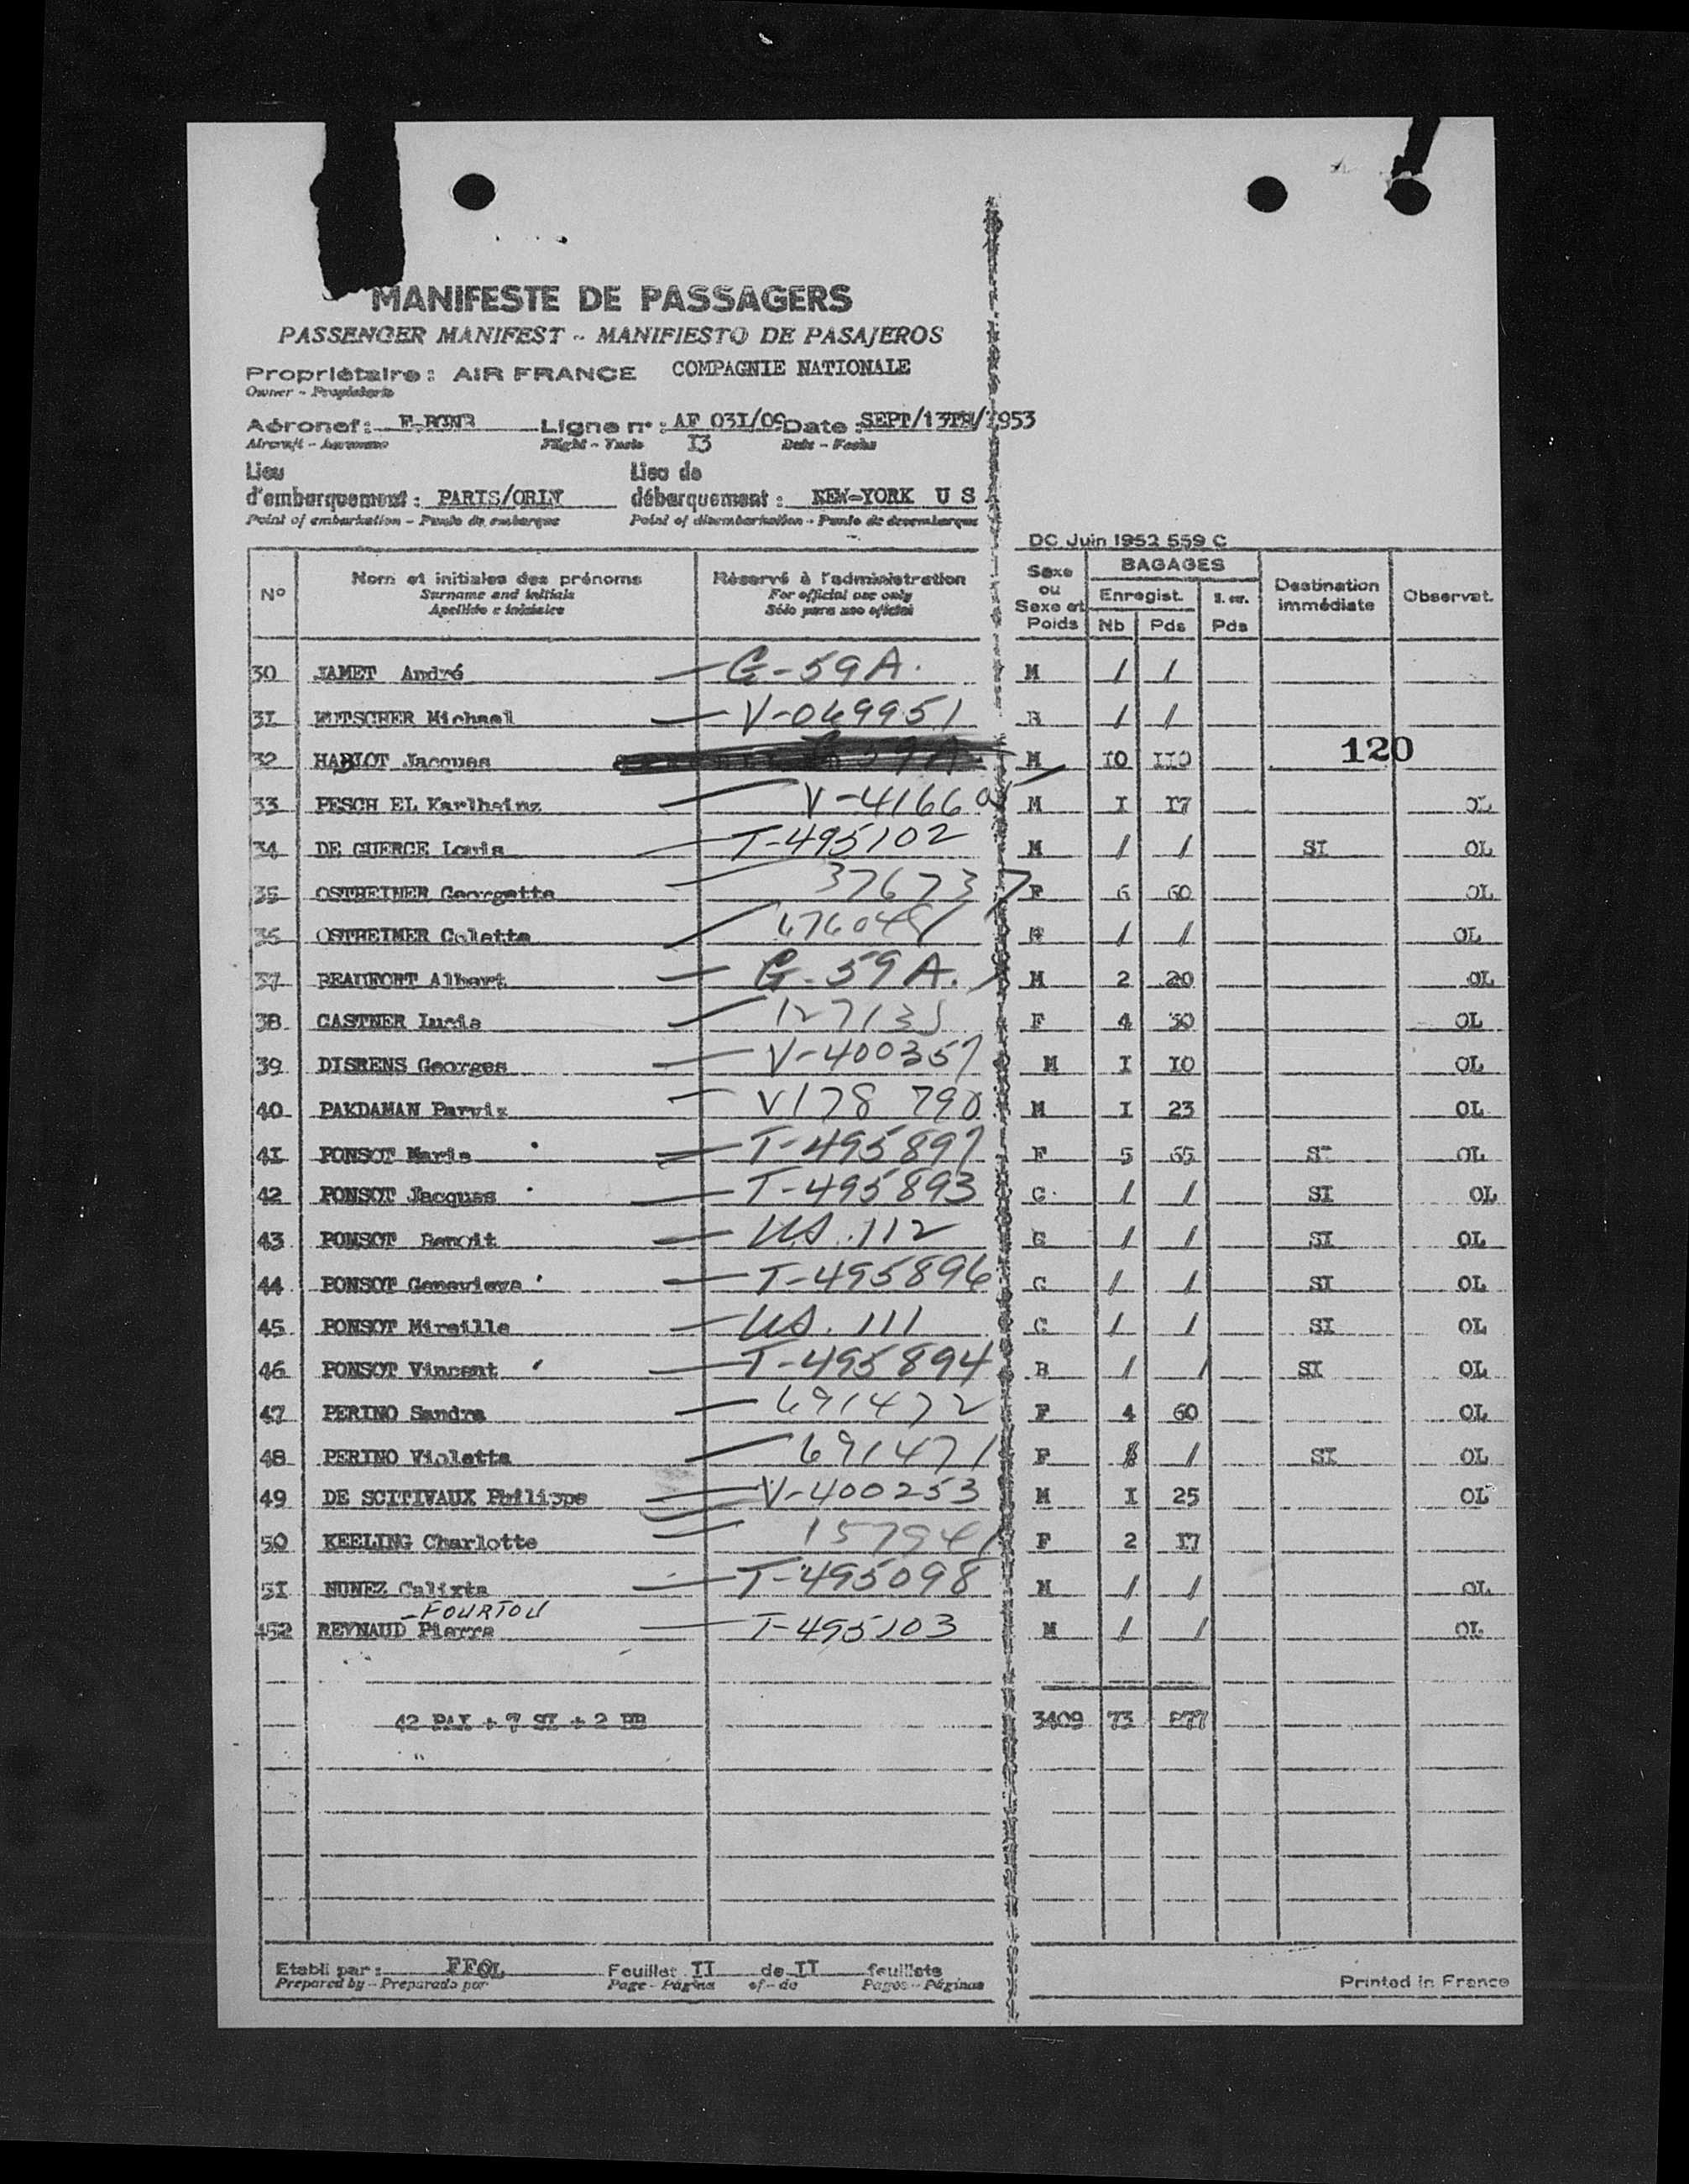 MANIFESTE DE PASSAGERS
PASSENGER MANIFEST - MANIFIESTO DE PASAJEROS
Propriétaire : AIR FRANCE COMPAGNIE NATIONALE
Owner - Propietario
Aéronef : Ligne n° : AF 031/09 Date : SEPT/13TH/1953
Aircraft - Flight - 13 Date - Fecha
Lieu Lieu de
d'embarquement : PARIS/ORLY débarquement : NEW-YORK U S
Point of embarkation - Punto de embarque Point of disembarkation - Punto de desembarque
DC Juin 1952 559 C
N° Nom et initiales des prénoms Réservé à l'administration Sexe ou Sexe et Poids BAGAGES Destination immédiate Observat.
Surname and initials For official use only Enregist.
Apellido e iniciales Sólo para uso oficial Nb Pds Pds
30 JAMET André G-59A. M / /
31 Michael V-069951 / /
32 HABLOT Jacques M 10 110 120
33 PESCH EL Karlheinz V-4166 M I 17 OL
34 DE GUERCE Louis T-495102 M / / SI OL
35 OSTHEIMER Georgette 376737 F 6 60 OL
36 OSTHEIMER Colette / / OL
37 BEAUFORT Albert G-59A. M 2 20 OL
38 CASTNER Lucie F 4 OL
39 DISRENS Georges V-400357 M I IO OL
40 PAKDAMAN Parviz V178 790 M I 23 OL
41 PONSOT Marie T-495897 F 5 65 OL
42 PONSOT Jacques T-495893 C / / SI OL
43 PONSOT Benoit US.112 / / SI OL
44 PONSOT Genevieve T-495896 C / / SI OL
45 PONSOT Mireille US.111 C / / SI OL
46 PONSOT Vincent T-495894 B / / SI OL
47 PERINO Sandra 691472 F 4 60 OL
48 PERINO Violetta 691471 F / SI OL
49 DE SCITIVAUX Philippe V-400253 M I 25 OL
50 KEELING Charlotte F 2 17
51 NUNEZ Calixta T-495098 M / / OL
-FOURTOU
52 REYNAUD Pierre T-495103 M / / OL
42 PAX + 7 SI + 2 BB 3409 73 877
Etabli par : FFOL Feuillet II de II feuillets
Prepared by - Preparado por Page - Página of - de Pages - Páginas
Printed in France